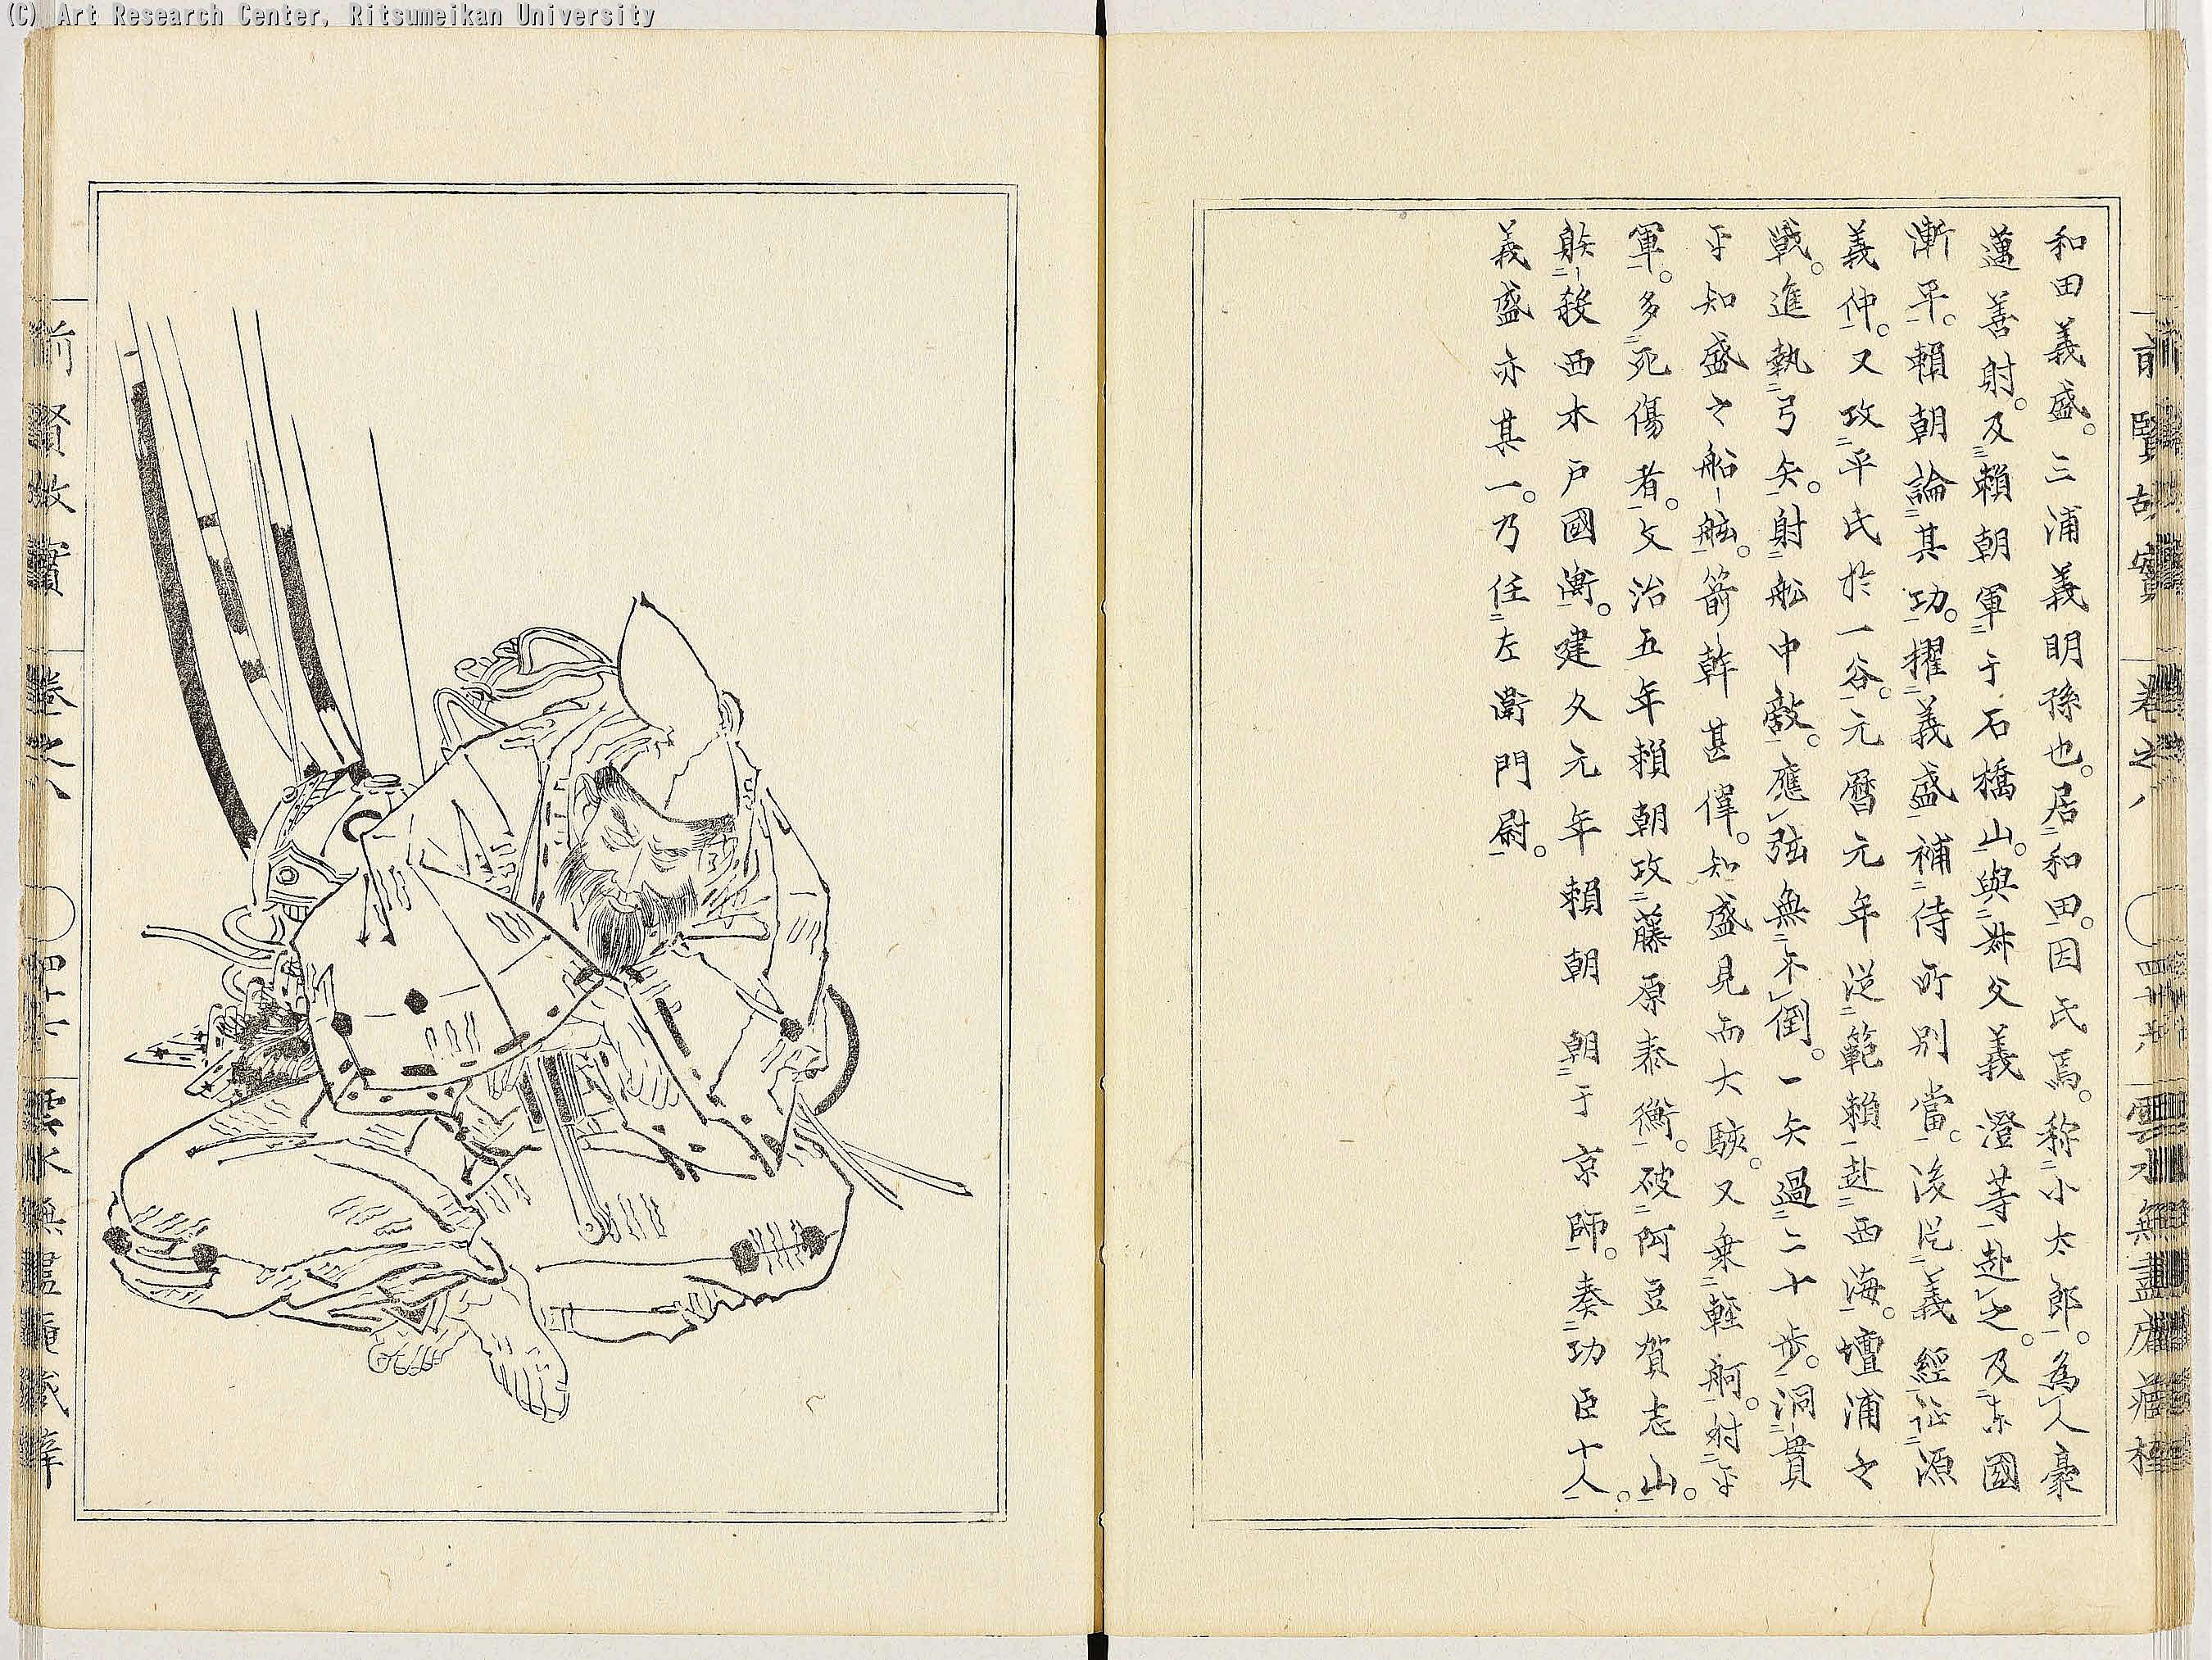 (C) Art Research Center, Ritsumeikan University
前賢故實 卷之八 雲水無盡庵藏梓
和田義盛。三浦義明孫也。居和田。因氏焉。称小太郎。為人豪
邁善射。及賴朝軍于石橋山。與叔父義澄等赴之。及東國
漸平。賴朝論其功。擢義盛補侍所別當。後從義經征源
義仲。又攻平氏於一谷。元曆元年從範賴赴西海。壇浦之
戰。進執弓矢。射舩中敵。應弦無不倒。一矢過二十步。洞貫
平知盛之船舷。箭幹甚偉。知盛見而大駭。又乗輕舸。射平
軍。多死傷者。文治五年賴朝攻藤原泰衡。破阿豆賀志山。
躾殺西木戸國衡。建久元年賴朝朝于京師。奏功臣十人。
義盛亦其一。乃任左衛門尉。
前賢故實 卷之八 雲水無盡庵藏梓